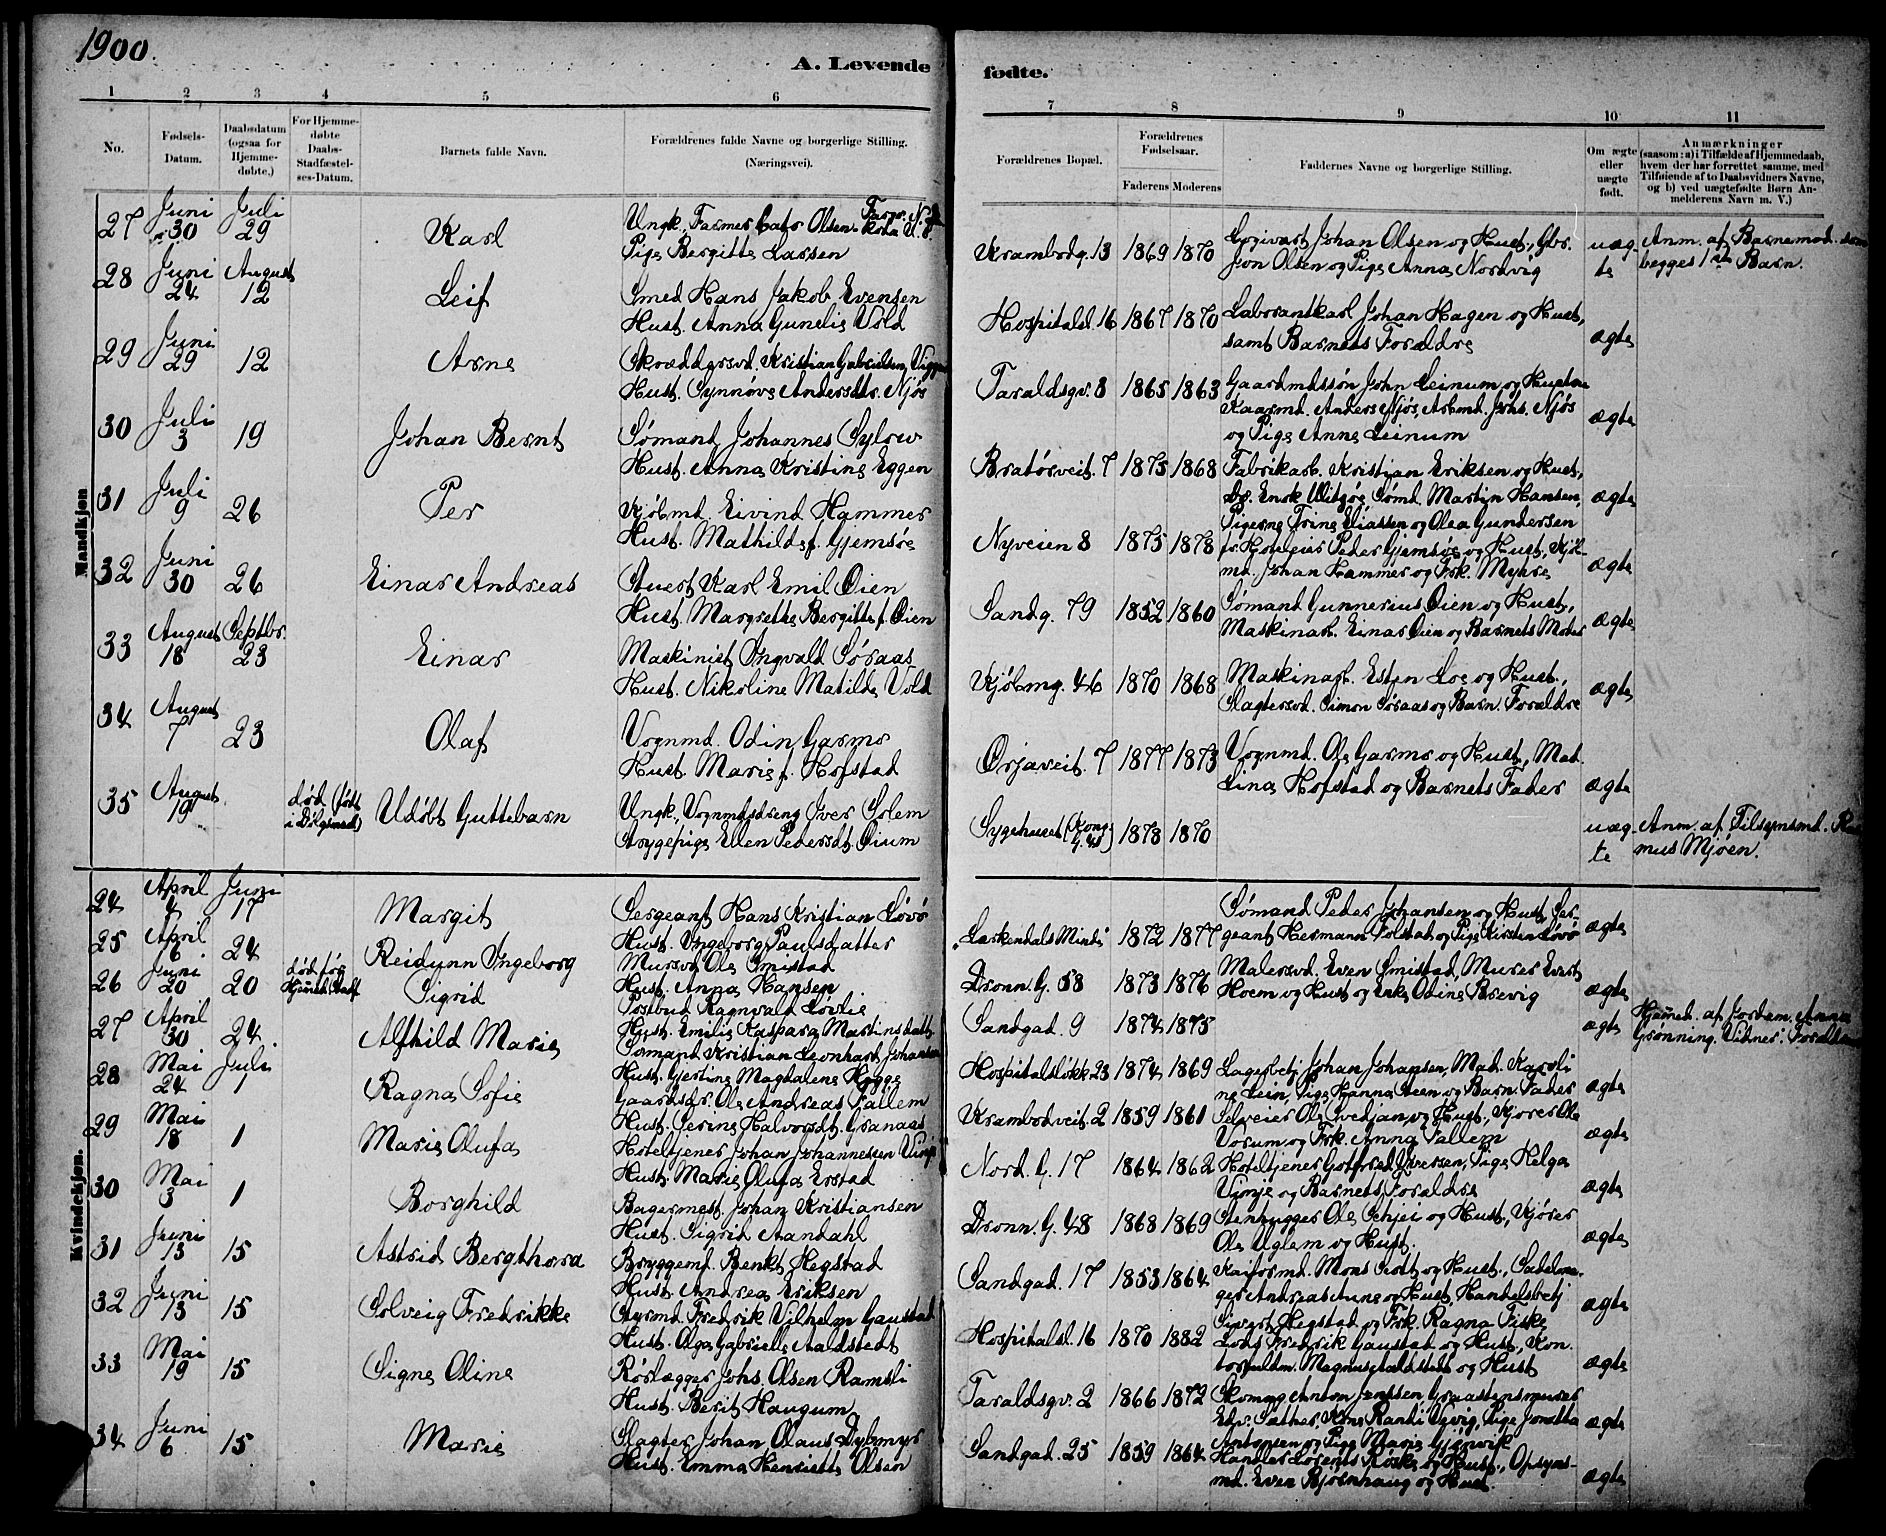 1900.
A. Levende
fødte.
1 2 3 4 5 6
7 8 9 10 11
No.
Fødsels-Datum.
Daabsdatum (ogsaa for Hjemme-døbte.)
For Hjemme-døbte Daabs-Stadfæstel-ses-Datum.
Barnets fulde Navn.
Forældrenes fulde Navne og borgerlige Stilling. (Næringsvei).
Forældrenes Bopæl.
Forældrenes Fødselsaar.
Faderens Moderens
Faddernes Navne og borgerlige Stilling.
Om ægte eller uægte født.
Anmærkninger (saasom: a) i Tilfælde af Hjemmedaab, hvem der har forrettet samme, med Tilføiende af to Daabsvidners Navne, og b) ved uægtefødte Børn An-melderens Navn m. V.)
Mandkjøn
27 Juni 30 Juli 29 Karl
Ungk. Farmer Olsen
Pige Bergitte Larsen
Krambodg. 13 1869 1870
Johan Olsen og Hust.,
Jon Olsen og Pige Anna Nordvig
uæg-te
Anm. af Barnemod.
begges 1ste Barn.
28 Juni 24 August 12 Leif
Smed Hans Jakob Evensen
Hust. Anna Gunelie Vold
Hospitalsl. 16 1867 1870
Laborantkarl Johan Hagen og Hust,
samt Barnets Forældre
ægte
29 Juni 29 12 Arne
Skræddersvd. Kristian Gabrielsen
Hust. Synnøve Andersdtr. Njøs
Taraldsgv. 8 1865 1863
Gaardmdssøn John Leinum og Hustru
Kaarmd. Anders Njøs, Arbmd. Johs. Njøs
og Pige Anne Leinum
ægte
30 Juli 3 19 Johan Bernt
Sømand Johannes Sylow
Hust. Anna Kristine Eggen
Bratørveit. 7 1875 1868
Fabrikarb. Kristian Eriksen og Hust,
Sømd. Martin Hansen,
Pigerne Trine Eliassen og Olea Gundersen
ægte
31 Juli 9 26 Per
Kjøbmd. Eivind Hammer
Hust. Mathilde f. Gjemsøe
Nyveien 8 1875 1878
Peder Gjemsøe og Hust, Kjøb-
md. Johan Hammer og Frk. Myhre
ægte
32 Juni 30 26 Einar Andreas
Stuert Karl Emil Øien
Hust. Margrethe Bergitte f. Øien
Sandg. 79 1852 1860
Sømand Gunnerius Øien og Hust,
Maskinarb. Einar Øien og Barnets Moder
ægte
33 August 18 Septbr. 23 Einar
Maskinist Ingvald Søraas
Hust. Nikoline Matilde Vold
Kjøbmg. 46 1870 1868
Maskinarb. Esten Loe og Hust.,
Slagtersvd. Simon Søraas og Barn. Forældre
ægte
34 August 7 23 Olaf
Vognmd. Odin Garmo
Hust. Marie f. Hofstad
Ørjaveit. 7 1877 1873
Vognmd. Ole Garmo og Hust, Mad.
Lina Hofstad og Barnets Fader
ægte
35 August 19 død (født i Dølgsmaal) Udøbt Guttebarn
Ungk. Vognmdsdreng Iver Solem
Strygepige Ellen Pedersdt. Øium
Sygehuset 1878 1870
uæg-te
Anm. af Tilsynsmd. Ras-
mus Mjøen.
Kvindekjøn.
24 April 4 Juni 17 Margit
Sergeant Hans Kristian Løvø
Hust. Ingeborg Paulsdatter
Lerkendals Minde 1872 1877
Sømand Peder Johansen og Hust, Ser-
geant Hermann Folstad og Pige Kirsten Løvø
ægte
25 April 6 24 Reidunn Ingeborg
Mursvd. Ole Smistad
Hust. Anna Hansen
Dronn. G. 58 1873 1876
Malersvd. Even Smistad, Murer Evert
Hoem og Hust og Enke Odine Brevig
ægte
26 Juni 20 20 død før Hjemd. Stadf. Sigrid
Postbud Ragnvald Løvlie
Hust. Emilie Kaspara Martinsdatt.
Sandgad. 9 1874 1875
ægte
Hjemmed. af Jordem. Anna
Grønning. Vidner: Forældrene
27 April 30 24 Alfhild Marie
Sømand Kristian Leonhart Johansen
Hust. Gjertine Magdalene Hygge
Hospitalsløkk. 23 1874 1869
Lagerbetj. Johan Johansen, Mad. Karoli-
ne Lein, Pige Hanna Steen og Barn. Fader
ægte
28 Mai 24 Juli 1 Ragna Sofie
Gaardsdr. Ole Andreas Fallem
Hust. Serine Halvorsdt. Granaas
Krambodveit. 2 1859 1861
Ole Svedjan og Hust, Kjører Ole
Vorum og Frk. Anna Fallem
ægte
29 Mai 18 1 Marie Olufa
Hoteltjener Johan Johannessen Vinje
Hust. Marie Olufa Erstad
Nord. G. 17 1864 1862
Hoteltjener Gotfred Iversen, Pige Helga
Vinje og Barnets Forældre
ægte
30 Mai 3 1 Borghild
Bagermest. Johan Kristiansen
Hust. Sigrid Aandahl
Dronn. G. 48 1868 1869
Stenhugger Ole Schjei og Hust, Kjører
Ole Uglem og Hust.
ægte
31 Juni 13 15 Astrid Bergthora
Bryggemd. Benkt Hegstad
Hust. Andrea Eriksen
Sandgad. 17 1853 1864
Kaiformd. Mons Rodt og Hust., Sadelma-
ger Andreas Aune og Hust, Handelsbetj.
Sivert Hegstad og Frk. Ragna Fiske
ægte
32 Juni 13 15 Solveig Fredrikke
Styrmd. Fredrik Vilhelm Gaustad
Hust. Olga Gabrielle Aaldstedt
Hospitalsl. 16 1870 1882
Lods Fredrik Gaustad og Hust, Kon-
torfuldm. Magnus Aaldstedt og Hust
ægte
33 Mai 19 15 Signe Oline
Rørlægger Johs. Olsen Ramsli
Hust. Berit Haugum
Taraldsgv. 2 1866 1872
Skomag. Anton Jenssen, Graastensmurer
Edv. Sæther, Kone Randi Ugvig, Pige Jonetta
Antonsen og Pige Marie Gjenvik
ægte
34 Juni 6 15 Marie
Slagter Johan Olaus Dybmyr
Hust. Emma Henriette Olsen
Sandgad. 25 1859 1864
Handler Lorents Røske og Hust, Opsyns-
md. Even Bjørnhaug og Hust.
ægte